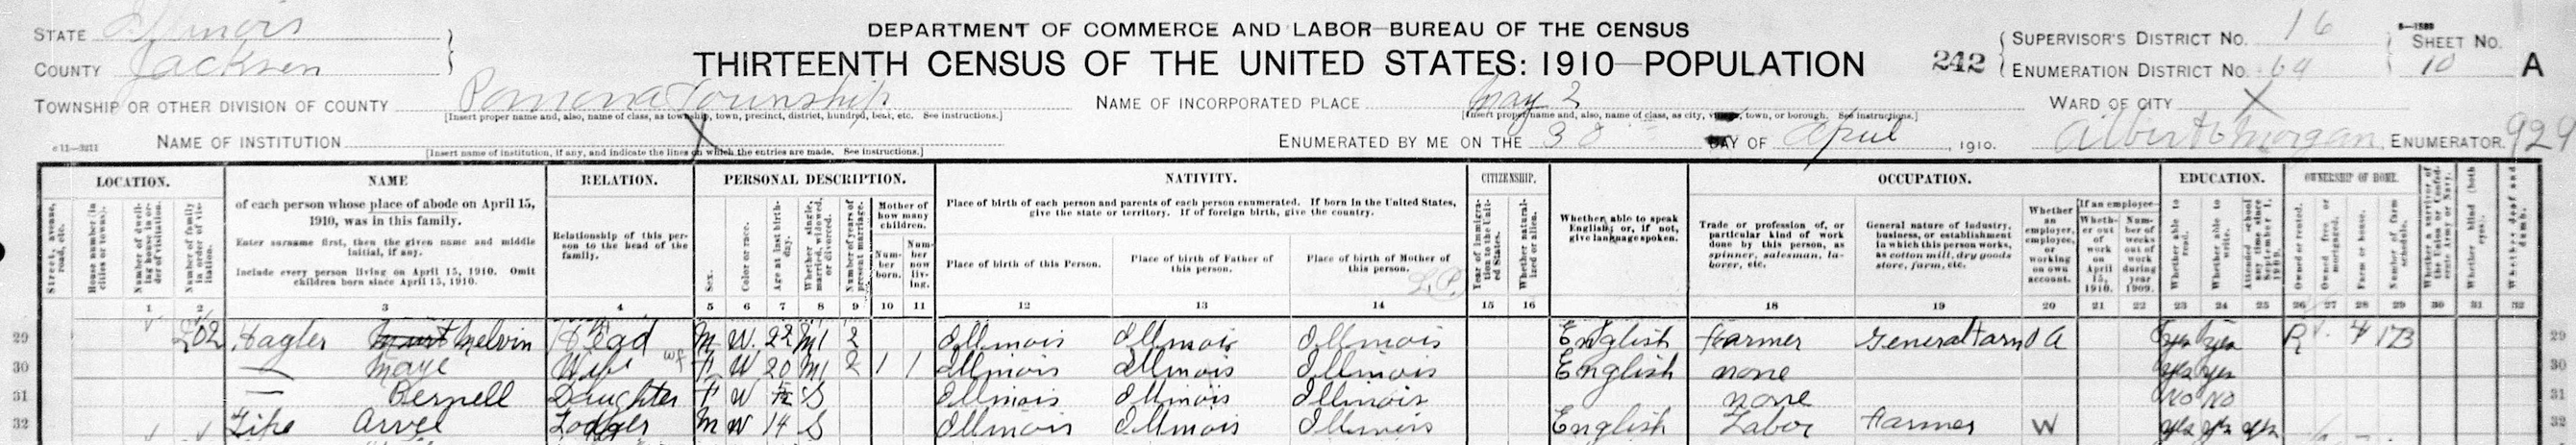 STATE Illinois
COUNTY Jackson
TOWNSHIP OR OTHER DIVISION OF COUNTY Pomona Township
[Insert proper name and, also, name of class, as township, town, precinct, district, hundred, beat, etc. See instructions.]
NAME OF INSTITUTION X
[Insert name of institution, if any, and indicate the lines on which the entries are made. See instructions.]
DEPARTMENT OF COMMERCE AND LABOR—BUREAU OF THE CENSUS
THIRTEENTH CENSUS OF THE UNITED STATES: 1910—POPULATION
NAME OF INCORPORATED PLACE May 2
[Insert proper name and, also, name of class, as city, village, town, or borough. See instructions.]
ENUMERATED BY ME ON THE DAY OF April, 1910.
242
SUPERVISOR'S DISTRICT No. 16
ENUMERATION DISTRICT No. 64
SHEET No.
10 A
WARD OF CITY X
Albert Morgan, ENUMERATOR. 929
LOCATION. NAME RELATION. PERSONAL DESCRIPTION. NATIVITY. CITIZENSHIP. OCCUPATION. EDUCATION. OWNERSHIP OF HOME.
Street, avenue, road, etc.
House number (in cities or towns).
Number of dwelling house in order of visitation.
Number of family in order of visitation.
of each person whose place of abode on April 15, 1910, was in this family.
Enter surname first, then the given name and middle initial, if any.
Include every person living on April 15, 1910. Omit children born since April 15, 1910.
Relationship of this person to the head of the family.
Sex.
Color or race.
Age at last birthday.
Whether single, married, widowed, or divorced.
Number of years of present marriage.
Mother of how many children.
Number born.
Number now living.
Place of birth of each person and parents of each person enumerated. If born in the United States, give the state or territory. If of foreign birth, give the country.
Place of birth of this Person.
Place of birth of Father of this person.
Place of birth of Mother of this person.
Year of immigration to the United States.
Whether naturalized or alien.
Whether able to speak English; or, if not, give language spoken.
Trade or profession of, or particular kind of work done by this person, as spinner, salesman, laborer, etc.
General nature of industry, business, or establishment in which this person works, as cotton mill, dry goods store, farm, etc.
Whether an employer, employee, or working on own account.
If an employee—
Whether out of work on April 15, 1910.
Number of weeks out of work during year 1909.
Whether able to read.
Whether able to write.
Attended school any time since September 1, 1909.
Owned or rented.
Owned free or mortgaged.
Farm or house.
Number of farm schedule.
Whether a survivor of the Union or Confederate Army or Navy.
Whether blind (both eyes).
Whether deaf and dumb.
1 2 3 4 5 6 7 8 9 10 11 12 13 14 15 16 18 19 20 21 22 23 24 25 26 27 28 29 30 31 32
29 202 Hagler Melvin Head M W 22 M1 2 Illinois Illinois Illinois English Farmer General Farm OA yes yes R 173 29
30 — Maye Wife F W 20 M1 2 1 1 Illinois Illinois Illinois English none yes yes 30
31 — Bernell Daughter F W S Illinois Illinois Illinois none No No 31
32 Fife Arvel Lodger M W 14 S Illinois Illinois Illinois English Labor Farmer W yes yes yes 32